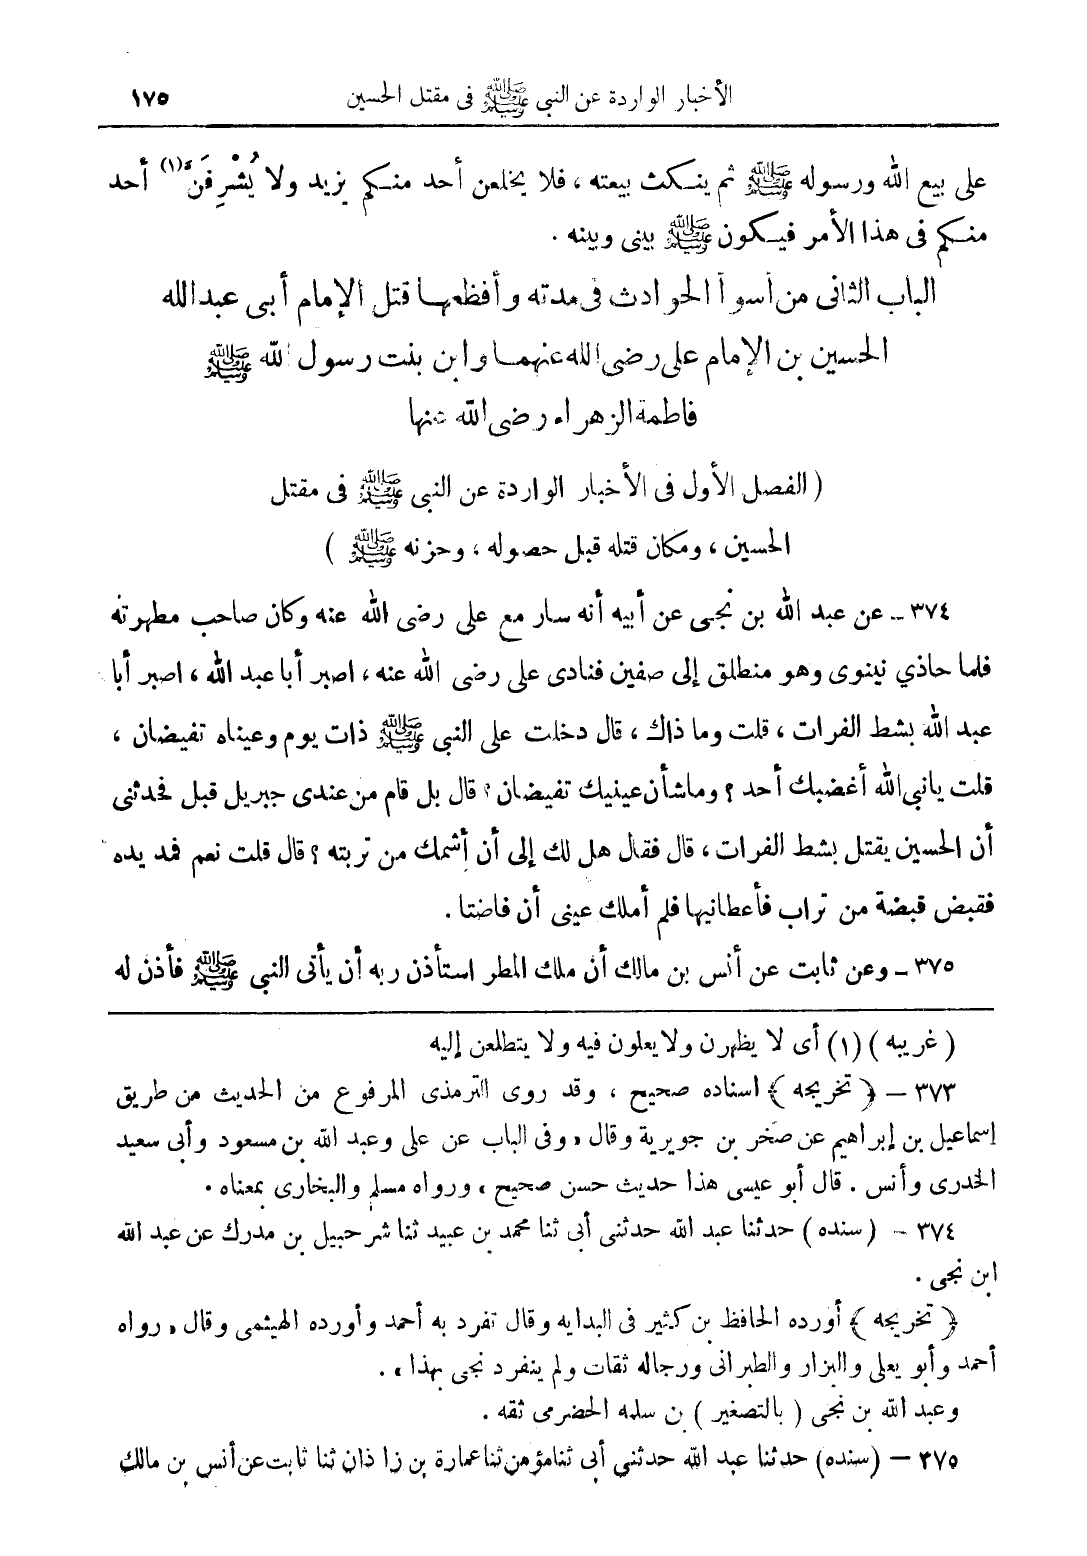 الأخبار الواردة عن النبى ﷺ فى مقتل الحسين ١٧٥
على بيع الله ورسوله ﷺ ثم ينكث بيعته ، فلا يخلعن أحد منكم يزيد ولا يُشْرِفَنَّ (١) أحد
منكم فى هذا الأمر فيكون ﷺ بينى وبينه .
الباب الثانى من أسوأ الحوادث فى مدته وأفظعها قتل الإمام أبى عبد الله
الحسين بن الإمام على رضى الله عنهما وابن بنت رسول الله ﷺ
فاطمة الزهراء رضى الله عنها
( الفصل الأول فى الأخبار الواردة عن النبى ﷺ فى مقتل
الحسين ، ومكان قتله قبل حصوله ، وحزنه ﷺ )
٣٧٤ - عن عبد الله بن نجى عن أبيه أنه سار مع على رضى الله عنه وكان صاحب مطهرته
فلما حاذي نينوى وهو منطلق إلى صفين فنادى على رضى الله عنه ، اصبر أبا عبد الله ، اصبر أبا
عبد الله بشط الفرات ، قلت وما ذاك ، قال دخلت على النبى ﷺ ذات يوم وعيناه تفيضان ،
قلت يانبى الله أغضبك أحد ؟ وماشأن عينيك تفيضان ؟ قال بل قام من عندى جبريل قبل فحدثنى
أن الحسين يقتل بشط الفرات ، قال فقال هل لك إلى أن أشمك من تربته ؟ قال قلت نعم فمد يده
فقبض قبضة من تراب فأعطانيها فلم أملك عينى أن فاضتا .
٣٧٥ - وعن ثابت عن أنس بن مالك أن ملك المطر استأذن ربه أن يأتى النبى ﷺ فأذن له
( غريبه ) (١) أى لا يظهرن ولا يعلون فيه ولا يتطلعن إليه
٣٧٣ - ﴿ تخريجه ﴾ اسناده صحيح ، وقد روى الترمذى المرفوع من الحديث من طريق
إسماعيل بن إبراهيم عن صخر بن جويرية وقال « وفى الباب عن على وعبد الله بن مسعود وأبى سعيد
الخدرى وأنس . قال أبو عيسى هذا حديث حسن صحيح ، ورواه مسلم والبخارى بمعناه .
٣٧٤ - (سنده) حدثنا عبد الله حدثنى أبى ثنا محمد بن عبيد ثنا شرحبيل بن مدرك عن عبد الله
ابن نجى .
﴿ تخريجه ﴾ أورده الحافظ بن كثير فى البدايه وقال تفرد به أحمد وأورده الهيثمى وقال « رواه
أحمد وأبو يعلى والبزار والطبرانى ورجاله ثقات ولم ينفرد نجى بهذا » .
وعبد الله بن نجى ( بالتصغير ) بن سلمه الحضرمى ثقه .
٣٧٥ - (سنده) حدثنا عبد الله حدثني أبى ثنا مؤمن ثنا عمارة بن زاذان ثنا ثابت عن أنس بن مالك